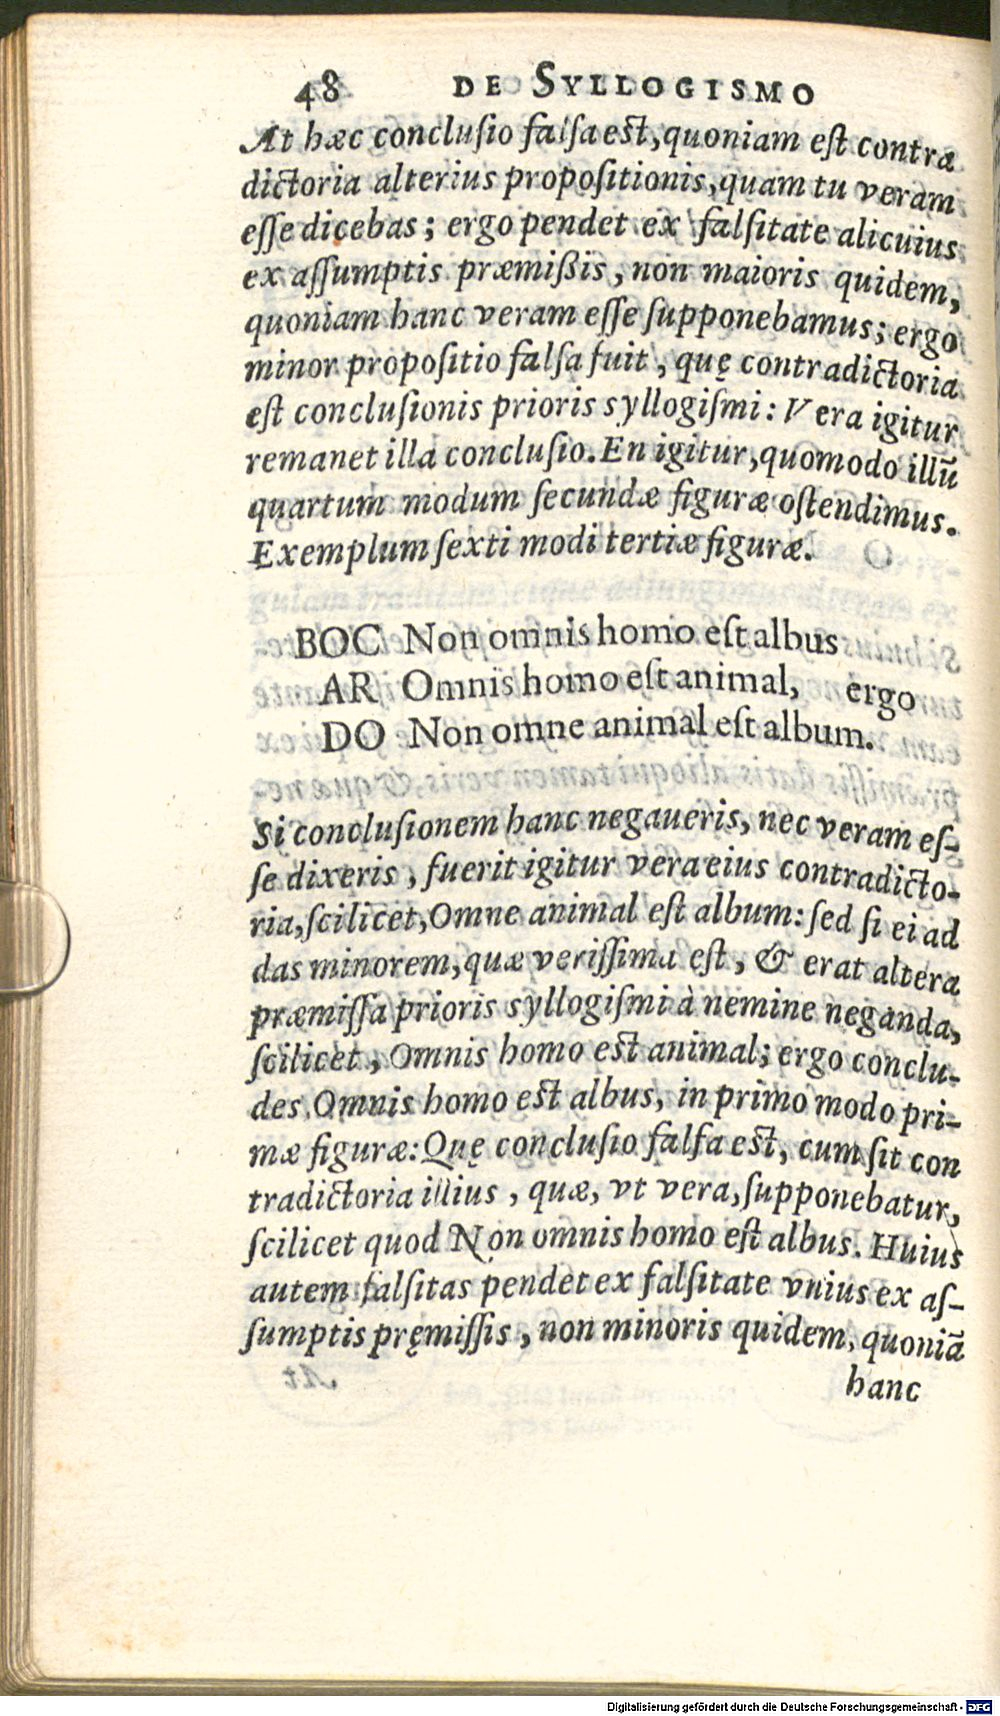 48 DE SYLLOGISMO
At hæc conclusio falsa est, quoniam est contra
dictoria alterius propositionis, quam tu veram
eſſe dicebas; ergo pendet ex falſitate alicuius
ex aſſumptis præmiſzis, non maioris quidem,
quoniam hanc veram eſſe ſupponebamus; ergo
minor propoſitio falſa fuit, quę contradictoria
eſt concluſionis prioris syllogiſmi: Vera igitur
remanet illa concluſio. En igitur, quomodo illũ
quartum modum ſecundæ figuræ oſtendimus.
Exemplum ſexti modi tertiæ figuræ.
BOC Non omnis homo eſt albus
AR Omnis homo eſt animal, ergo
DO Non omne animal eſt album.
Si concluſionem hanc negaueris, nec veram eſ-
ſe dixeris, fuerit igitur vera eius contradicto-
ria, ſcilicet, Omne animal eſt album: ſed ſi ei ad
das minorem, quæ veriſſima eſt, & erat altera
præmiſſa prioris syllogiſmi à nemine neganda,
ſcilicet, Omnis homo eſt animal; ergo conclu-
des, Omnis homo eſt albus, in primo modo pri-
mæ figuræ: Quę concluſio falſa eſt, cum ſit con
tradictoria illius, quæ, vt vera, ſupponebatur,
ſcilicet quod Non omnis homo eſt albus. Huius
autem falſitas pendet ex falſitate vnius ex aſ-
ſumptis pręmiſſis, non minoris quidem, quoniã
hanc
Digitalisierung gefördert durch die Deutsche Forschungsgemeinschaft - DFG